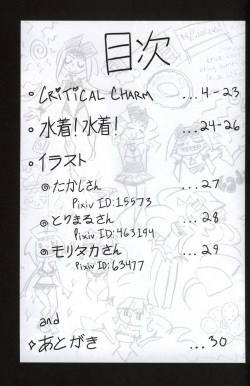 目次
CRITICAL CHARM ...4-23
水着!水着! ...24-26
イラスト
@たかしさん ...27
Pixiv ID:15573
@とりまるさん ...28
Pixiv ID:463194
@モリタカさん ...29
Pixiv ID:63477
and
あとがき ...30